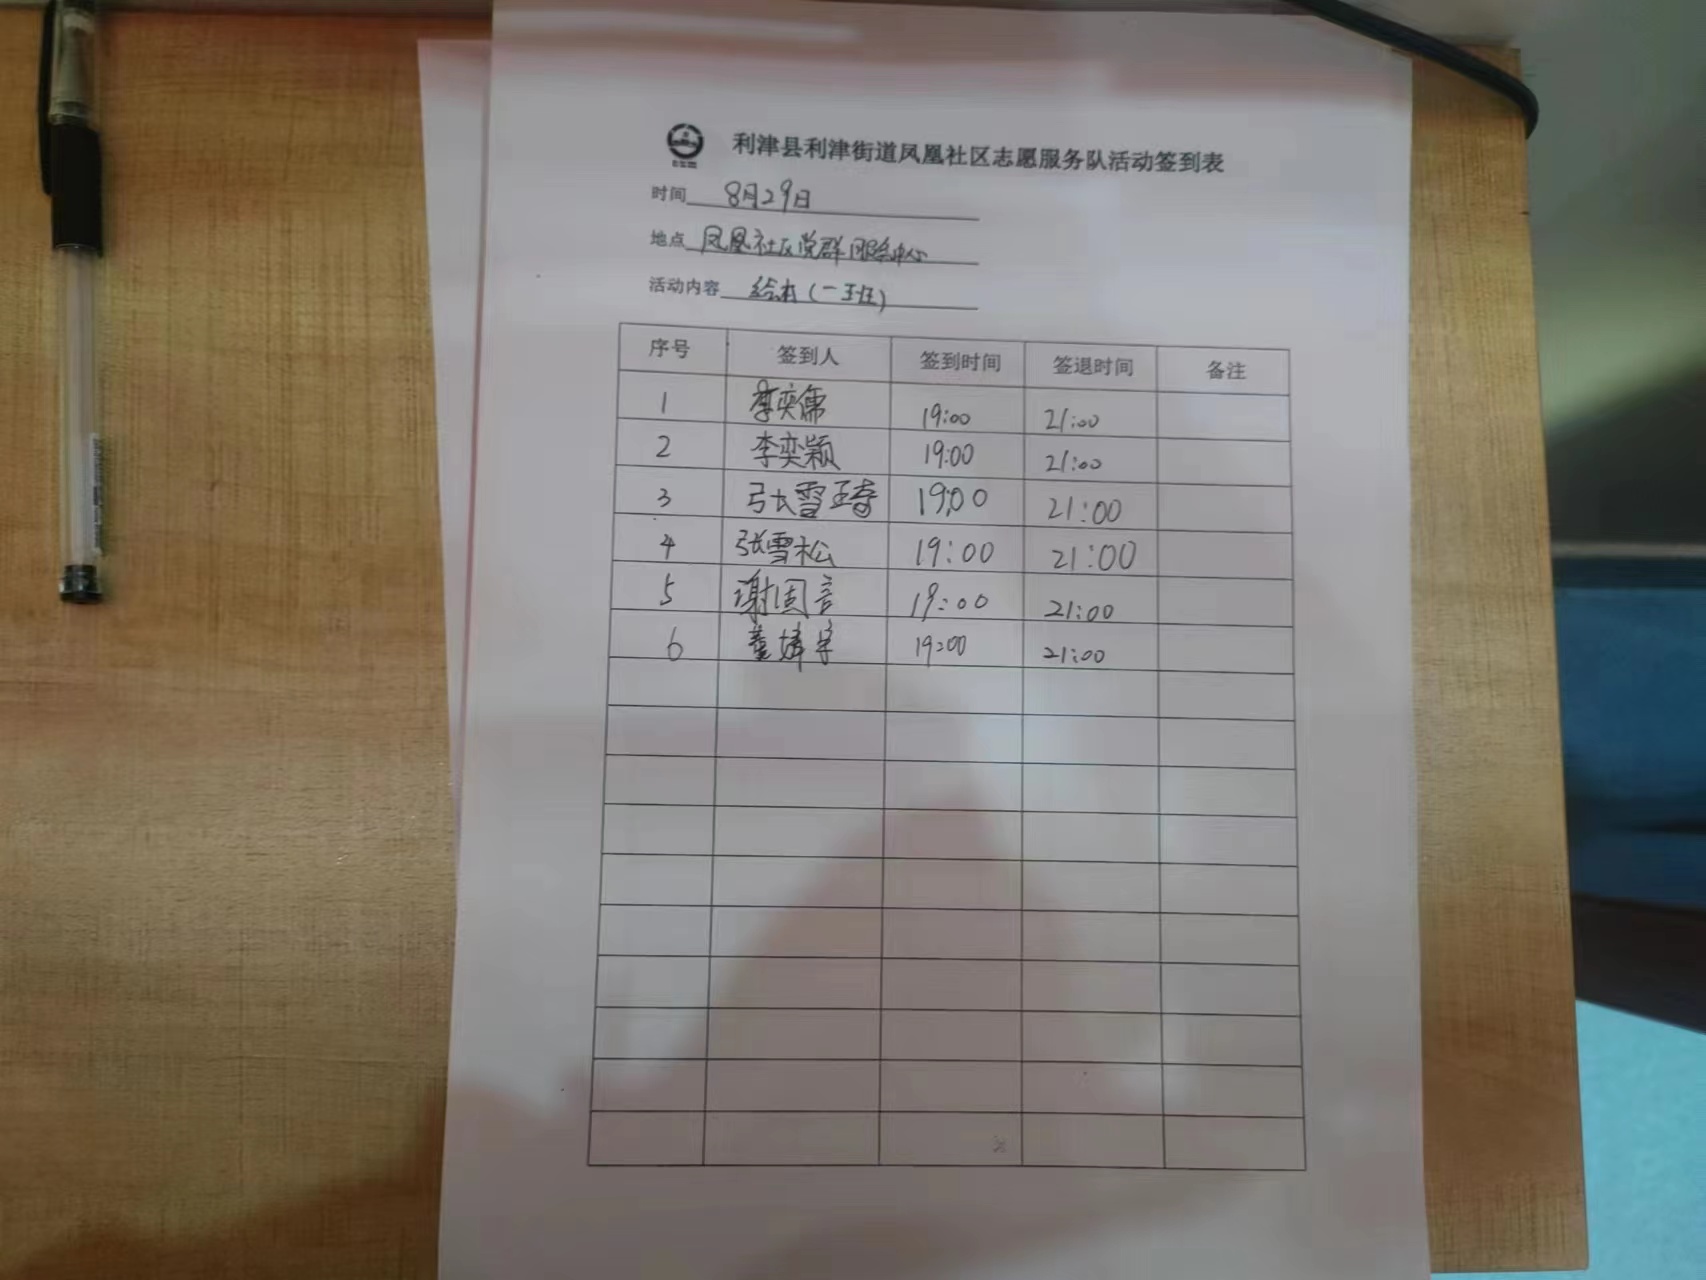 利津县利津街道凤凰社区志愿服务队活动签到表
时间 8月29日
地点 凤凰社区党群服务中心
活动内容 绘本(一班)
序号 签到人 签到时间 签退时间 备注
1 李奕儒 19:00 21:00
2 李奕颖 19:00 21:00
3 张雪琦 19:00 21:00
4 张雪松 19:00 21:00
5 谢固言 19:00 21:00
6 19:00 21:00